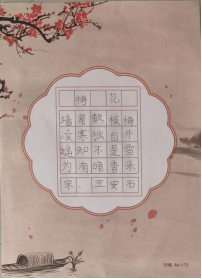 梅花
墙角数枝梅
凌寒独自开
遥知不是雪
为有暗香来
宋、王安石
A4-173